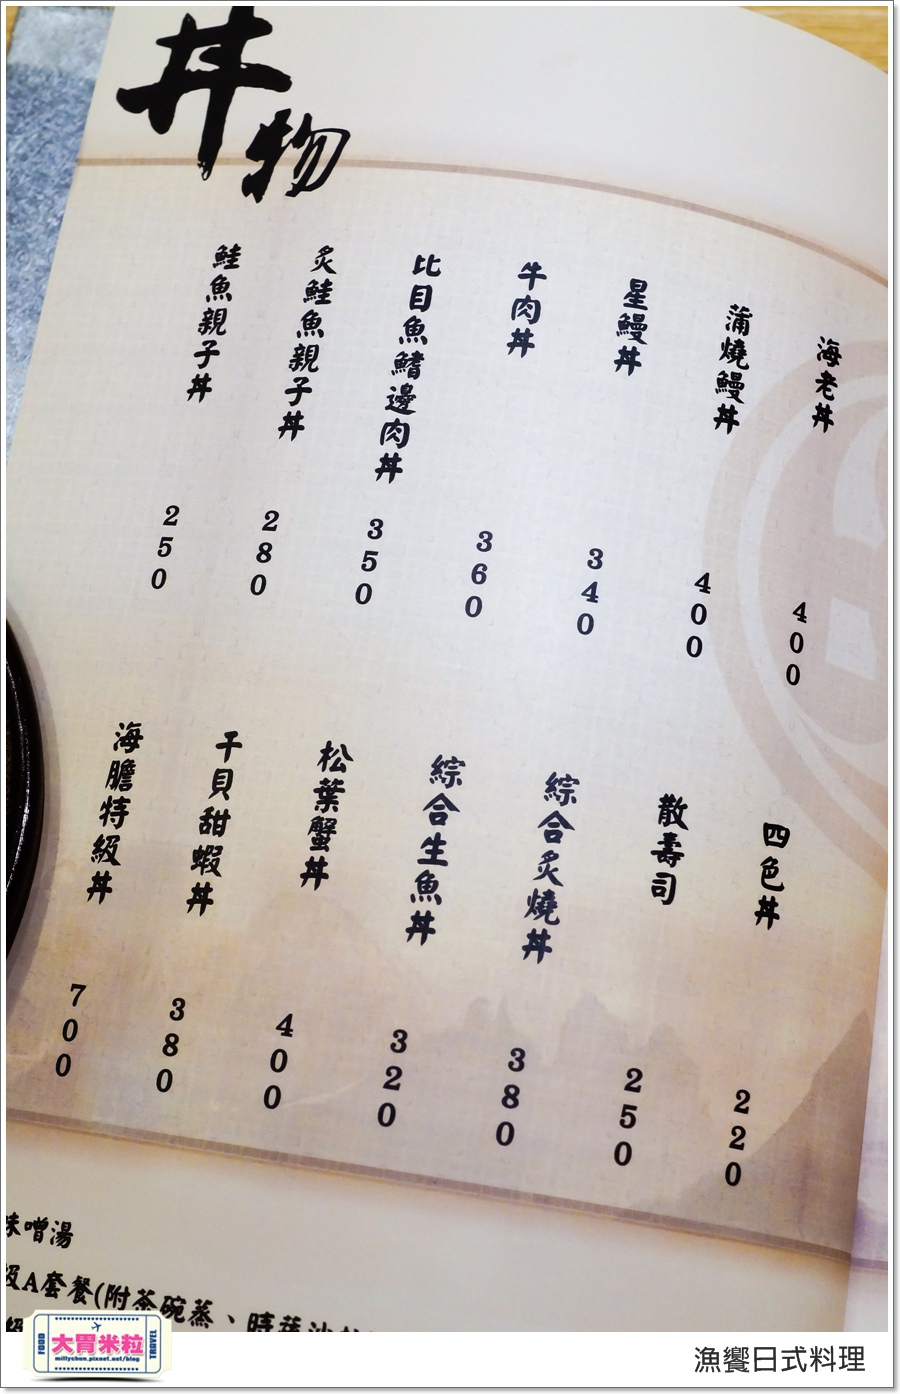 丼物
海老丼 400
蒲燒鰻丼 400
星鰻丼 340
牛肉丼 360
比目魚鰭邊肉丼 350
炙鮭魚親子丼 280
鮭魚親子丼 250
四色丼 220
散壽司 250
綜合炙燒丼 380
綜合生魚丼 320
松葉蟹丼 400
干貝甜蝦丼 380
海膽特級丼 700
味噌湯
級A套餐(附茶碗蒸、時蔬沙
FOOD
大胃米粒
TRAVEL
millychun.pixnet.net/blog
漁饗日式料理